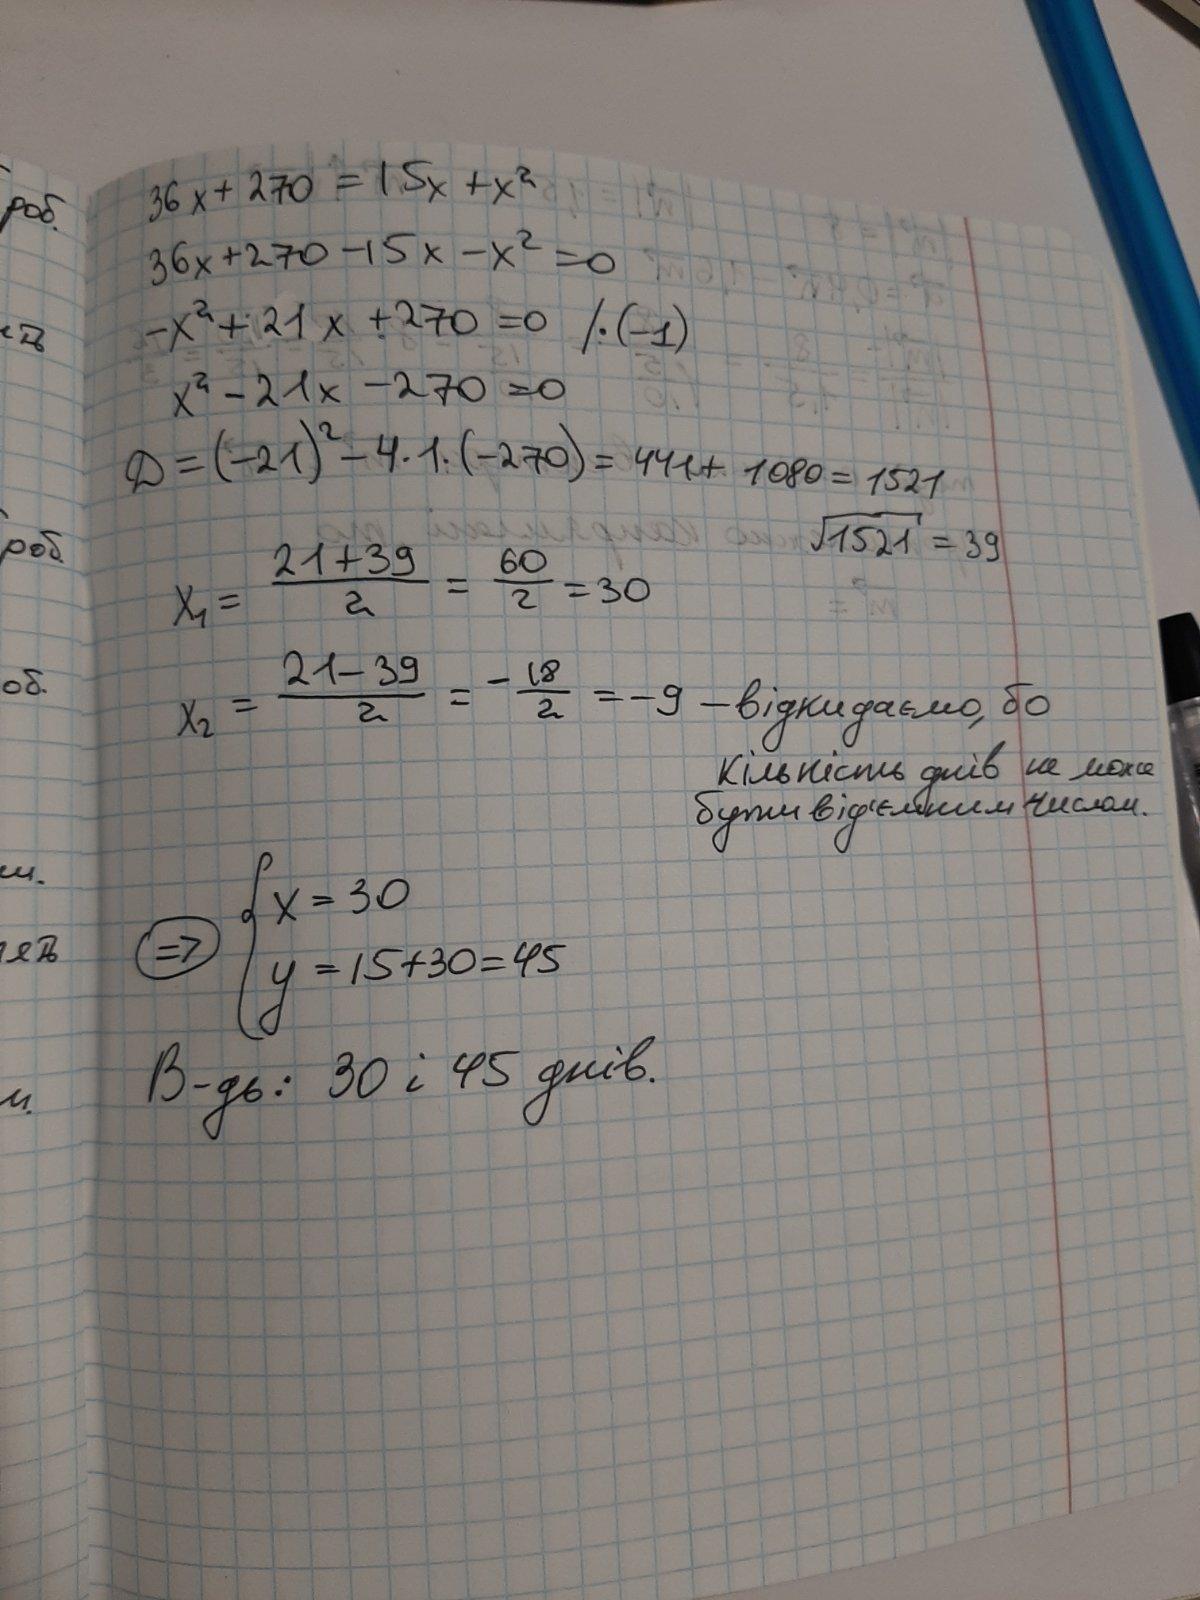 роб.
36x + 270 = 15x + x²
36x + 270 - 15x - x² = 0
-x² + 21x + 270 = 0 /·(-1)
x² - 21x - 270 = 0
D = (-21)² - 4·1·(-270) = 441 + 1080 = 1521
роб.
√1521 = 39
x₁ = (21+39)/2 = 60/2 = 30
об.
x₂ = (21-39)/2 = -18/2 = -9 – відкидаємо, бо
кількість днів не може
бути від'ємним числом.
=> { x = 30
y = 15+30=45
В-дь: 30 і 45 днів.